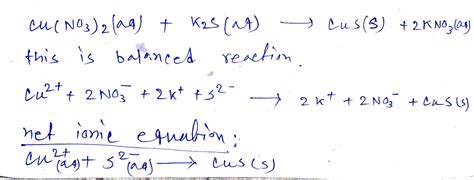 Cu(NO3)2(aq) + K2S(aq) ⟶ CuS(s) + 2KNO3(aq)
this is balanced reaction.
Cu2+ + 2NO3- + 2K+ + S2- ⟶ 2K+ + 2NO3- + CuS(s)
net ionic equation:
Cu2+(aq) + S2-(aq) ⟶ CuS(s)